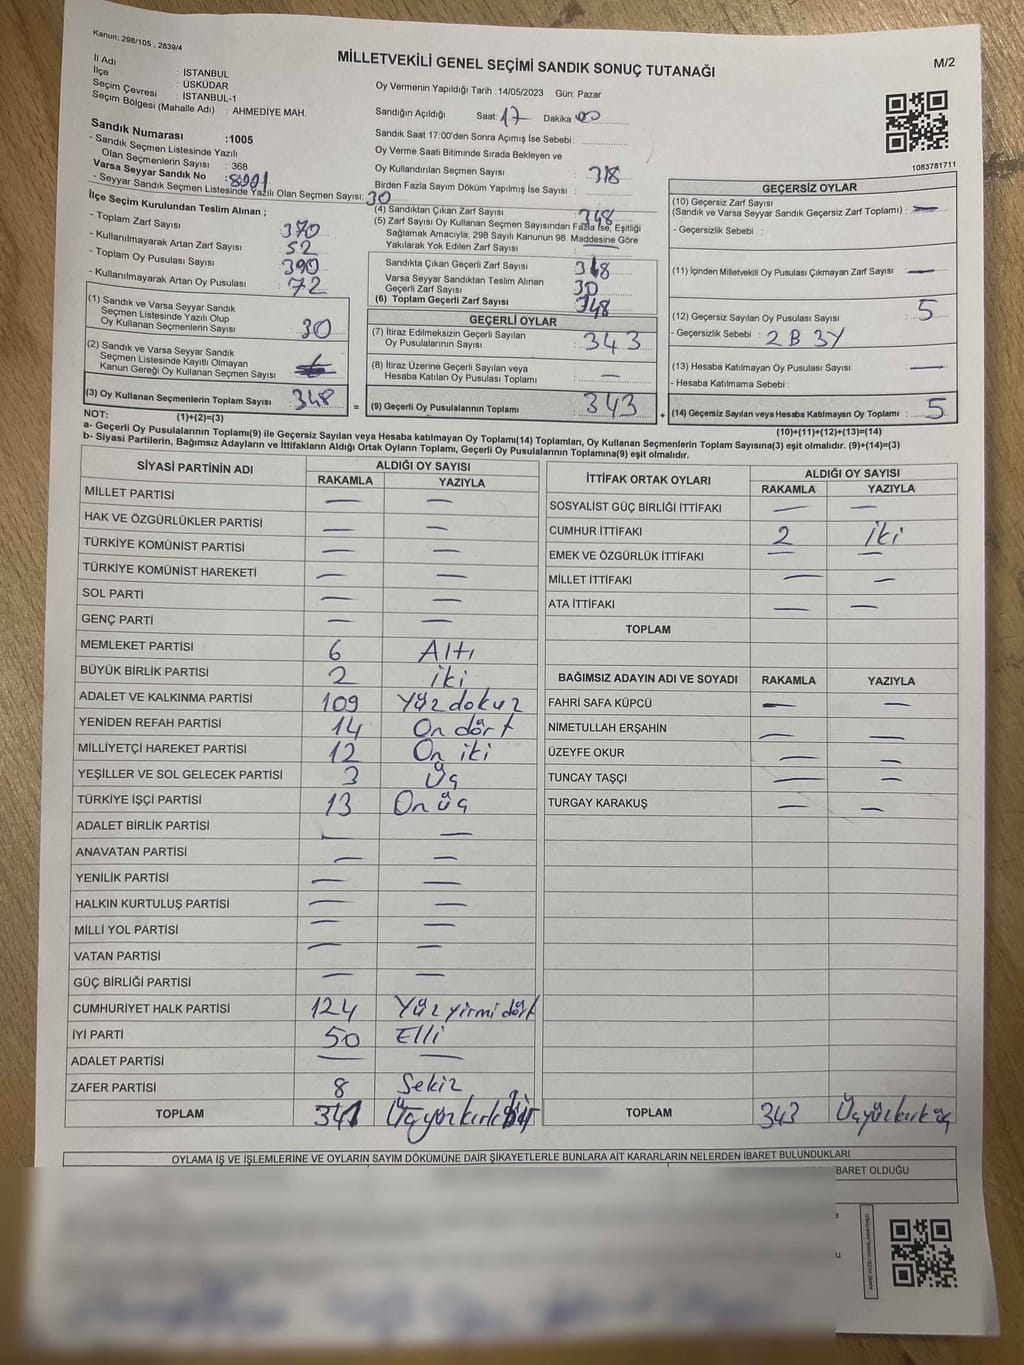 Kanun; 298/105 , 2839/4
MİLLETVEKİLİ GENEL SEÇİMİ SANDIK SONUÇ TUTANAĞI
M/2
İl Adı : İSTANBUL
İlçe : ÜSKÜDAR
Seçim Çevresi : İSTANBUL-1
Seçim Bölgesi (Mahalle Adı) : AHMEDİYE MAH.
Sandık Numarası :1005
- Sandık Seçmen Listesinde Yazılı
Olan Seçmenlerin Sayısı : 368
Varsa Seyyar Sandık No :
- Seyyar Sandık Seçmen Listesinde Yazılı Olan Seçmen Sayısı: 30
Oy Vermenin Yapıldığı Tarih :14/05/2023 Gün: Pazar
Sandığın Açıldığı Saat: 17 Dakika 00
Sandık Saat 17:00'den Sonra Açımış İse Sebebi :
Oy Verme Saati Bitiminde Sırada Bekleyen ve
Oy Kullandırılan Seçmen Sayısı : 318
Birden Fazla Sayım Döküm Yapılmış İse Sayısı :
1083781711
İlçe Seçim Kurulundan Teslim Alınan ;
- Toplam Zarf Sayısı : 370
- Kullanılmayarak Artan Zarf Sayısı : 52
- Toplam Oy Pusulası Sayısı : 390
- Kullanılmayarak Artan Oy Pusulası : 72
(1) Sandık ve Varsa Seyyar Sandık
Seçmen Listesinde Yazılı Olup
Oy Kullanan Seçmenlerin Sayısı : 30
(2) Sandık ve Varsa Seyyar Sandık
Seçmen Listesinde Kayıtlı Olmayan
Kanun Gereği Oy Kullanan Seçmen Sayısı :
(3) Oy Kullanan Seçmenlerin Toplam Sayısı : 348
(1)+(2)=(3)
(4) Sandıktan Çıkan Zarf Sayısı : 348
(5) Zarf Sayısı Oy Kullanan Seçmen Sayısından Fazla İse, Eşitliği
Sağlamak Amacıyla, 298 Sayılı Kanunun 98. Maddesine Göre
Yakılarak Yok Edilen Zarf Sayısı :
Sandıkta Çıkan Geçerli Zarf Sayısı : 318
Varsa Seyyar Sandıktan Teslim Alınan
Geçerli Zarf Sayısı : 30
(6) Toplam Geçerli Zarf Sayısı : 348
GEÇERLİ OYLAR
(7) İtiraz Edilmeksizin Geçerli Sayılan
Oy Pusulalarının Sayısı : 343
(8) İtiraz Üzerine Geçerli Sayılan veya
Hesaba Katılan Oy Pusulası Toplamı : —
= (9) Geçerli Oy Pusulalarının Toplamı : 343
GEÇERSİZ OYLAR
(10) Geçersiz Zarf Sayısı
(Sandık ve Varsa Seyyar Sandık Geçersiz Zarf Toplamı) : —
- Geçersizlik Sebebi :
(11) İçinden Milletvekili Oy Pusulası Çıkmayan Zarf Sayısı : —
(12) Geçersiz Sayılan Oy Pusulası Sayısı : 5
- Geçersizlik Sebebi : 2 B 3Y
(13) Hesaba Katılmayan Oy Pusulası Sayısı : —
- Hesaba Katılmama Sebebi :
+ (14) Geçersiz Sayılan veya Hesaba Katılmayan Oy Toplamı : 5
(10)+(11)+(12)+(13)=(14)
NOT:
a- Geçerli Oy Pusulalarının Toplamı(9) ile Geçersiz Sayılan veya Hesaba katılmayan Oy Toplamı(14) Toplamları, Oy Kullanan Seçmenlerin Toplam Sayısına(3) eşit olmalıdır. (9)+(14)=(3)
b- Siyasi Partilerin, Bağımsız Adayların ve İttifakların Aldığı Ortak Oyların Toplamı, Geçerli Oy Pusulalarının Toplamına(9) eşit olmalıdır.
SİYASİ PARTİNİN ADI ALDIĞI OY SAYISI
RAKAMLA YAZIYLA
MİLLET PARTİSİ — —
HAK VE ÖZGÜRLÜKLER PARTİSİ — —
TÜRKİYE KOMÜNİST PARTİSİ — —
TÜRKİYE KOMÜNİST HAREKETİ — —
SOL PARTİ — —
GENÇ PARTİ — —
MEMLEKET PARTİSİ 6 Altı
BÜYÜK BİRLİK PARTİSİ 2 iki
ADALET VE KALKINMA PARTİSİ 109 Yüz dokuz
YENİDEN REFAH PARTİSİ 14 On dört
MİLLİYETÇİ HAREKET PARTİSİ 12 On iki
YEŞİLLER VE SOL GELECEK PARTİSİ 3 Üç
TÜRKİYE İŞÇİ PARTİSİ 13 On üç
ADALET BİRLİK PARTİSİ — —
ANAVATAN PARTİSİ — —
YENİLİK PARTİSİ — —
HALKIN KURTULUŞ PARTİSİ — —
MİLLİ YOL PARTİSİ — —
VATAN PARTİSİ — —
GÜÇ BİRLİĞİ PARTİSİ — —
CUMHURİYET HALK PARTİSİ 124 Yüz yirmi dört
İYİ PARTİ 50 Elli
ADALET PARTİSİ — —
ZAFER PARTİSİ 8 Sekiz
TOPLAM 341 Üçyüzkırkbir
İTTİFAK ORTAK OYLARI ALDIĞI OY SAYISI
RAKAMLA YAZIYLA
SOSYALİST GÜÇ BİRLİĞİ İTTİFAKI — —
CUMHUR İTTİFAKI 2 iki
EMEK VE ÖZGÜRLÜK İTTİFAKI — —
MİLLET İTTİFAKI — —
ATA İTTİFAKI — —
TOPLAM
BAĞIMSIZ ADAYIN ADI VE SOYADI RAKAMLA YAZIYLA
FAHRİ SAFA KÜPCÜ — —
NİMETULLAH ERŞAHİN — —
ÜZEYFE OKUR — —
TUNCAY TAŞÇI — —
TURGAY KARAKUŞ — —
TOPLAM 343 Üçyüzkırküç
OYLAMA İŞ VE İŞLEMLERİNE VE OYLARIN SAYIM DÖKÜMÜNE DAİR ŞİKAYETLERLE BUNLARA AİT KARARLARIN NELERDEN İBARET BULUNDUKLARI
İBARET OLDUĞU